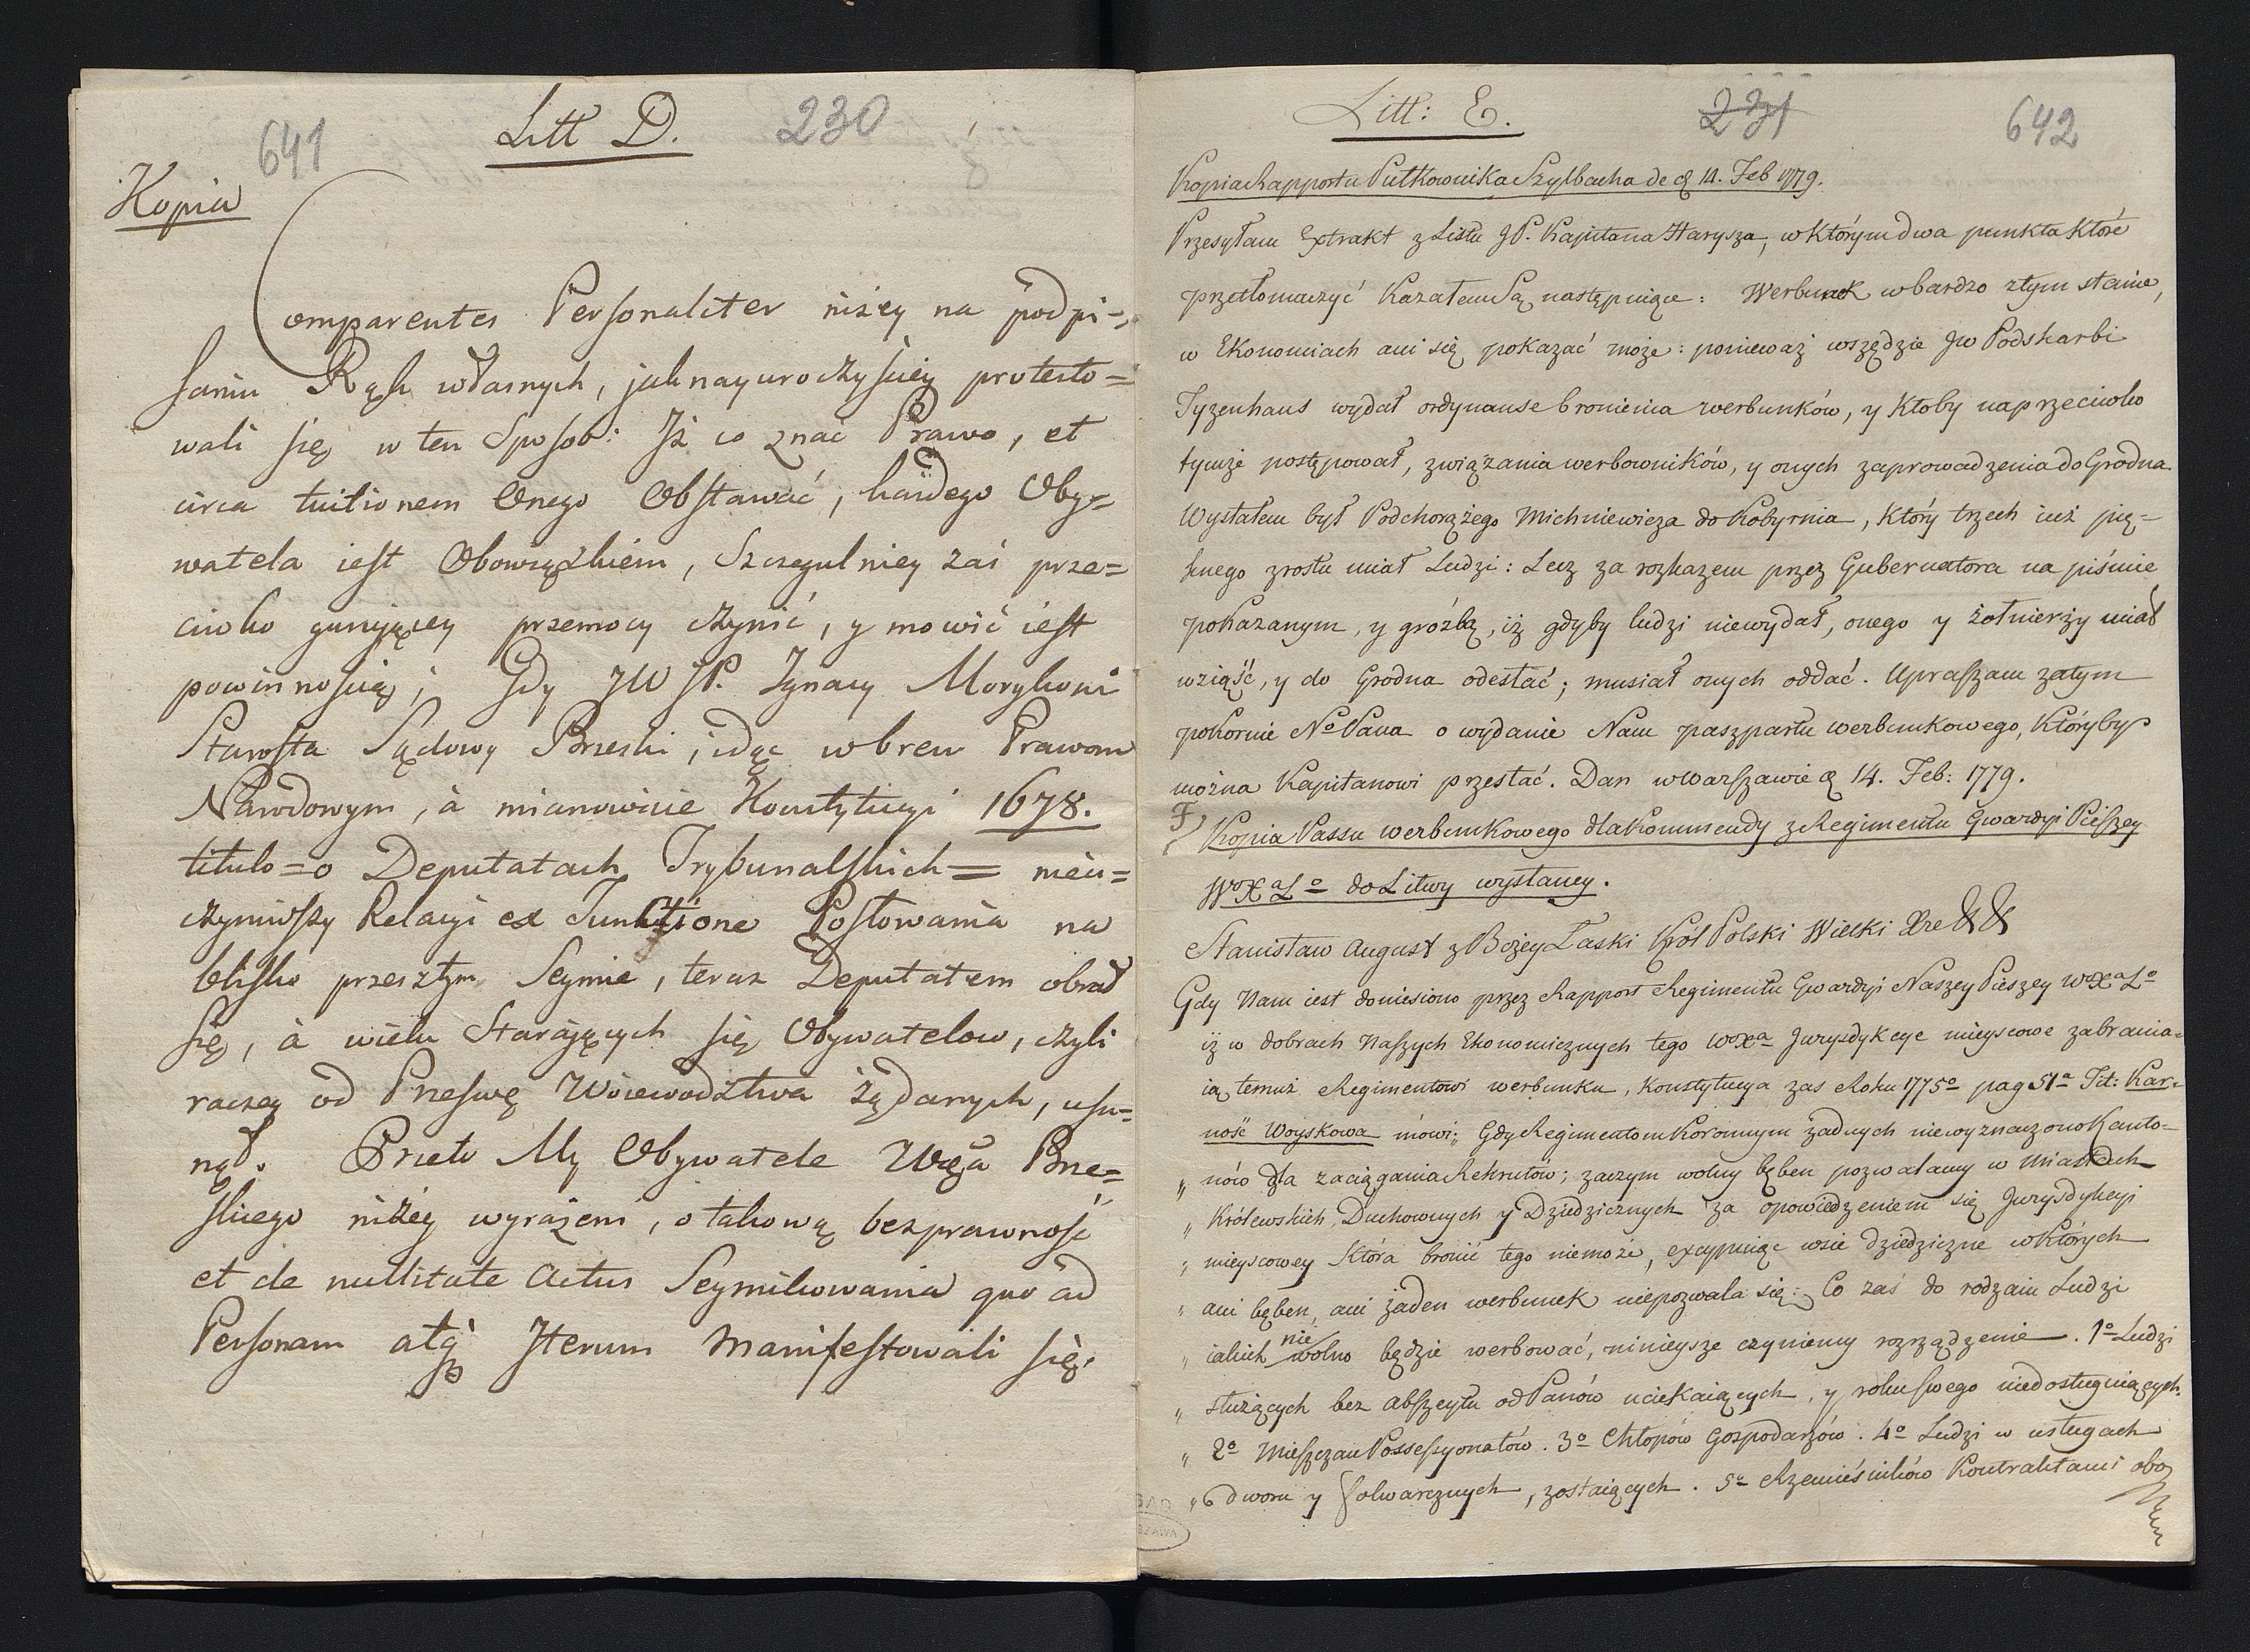 641
Litt D.
230
Kopia
Comparentes Personaliter niżey na podpi-
saniu Rąk własnych, jak nayuroczyściey protesto=
wali się w ten Sposob: Iż co znać Prawo, et
circa tuitionem Onego Obstawać, każdego Oby=
watela iest Obowiązkiem, Szczegulniey zaś prze=
ciwko gurującey przemocy czynić, y mowić iest
powinnością; Gdy JW JP. Ignacy Morykoni
Starosta Sądowy Brzeski, idąc wbrew Prawom
Narodowym, à mianowicie Konstytucyi 1678.
titulo=o Deputatach Trybunalskich= nieu=
czyniwszy Relacyi ex Functione Posłowania na
blisko przeszłym Seymie, teraz Deputatem obrał
się, à wielu Starających się Obywatelow, czyli
raczey od Przeswę Woiewodztwa żądanych, usu=
nął. Przeto My Obywatele Wdztwa Brze=
skiego niżey wyrażeni, o takową bezprawność
et de nullitate Actus Seymikowania quo ad
Personam atq Iterum Manifestowali się.
Litt: E.
231
642
Kopia Rapportu Pułkownika Szylbacha de d 14. Feb 1779.
Przesyłam Extrakt z Listu JP. Kapitana Harysza, w którym dwa punkta które
przetłomaczyć kazałem Są następuiące: Werbunek w bardzo złym stanie,
w Ekonomiach ani się pokazać może: ponieważ wszędzie JW Podskarbi
Tyzenhaus wydał ordynanse bronienia werbunków, y ktoby naprzeciwko
tymże postępował, związania werbowników, y onych zaprowadzenia do Grodna.
Wysłałem był Podchorążego Michniewicza do Kobrynia, który trzech iuż pię-
knego zrostu miał Ludzi: Lecz za rozkazem przez Gubernatora na piśmie
pokazanym, y groźbą, iż gdyby ludzi niewydał, onego y żołnierzy miał
wziąść, y do Grodna odesłać; musiał onych oddać. Upraszam zatym
pokornie No Pana o wydanie Nam paszpartu werbunkowego, któryby
można Kapitanowi przesłać. Dan w Warszawie d 14. Feb: 1779.
F) Kopia Passu werbunkowego dla Kommendy z Regimentu Gwardyi Pieszey
WoXaLo do Litwy wysłaney.
Stanisław August z Bożey Łaski Król Polski Wielki Xże &&
Gdy Nam iest doniesiono przez Rapport Regimentu Gwardyi Naszey Pieszey WoXaLo
iż w dobrach Naszych Ekonomicznych tego WoXa Jurysdykcye mieyscowe zabrania=
ią temuż Regimentowi werbunku, Konstytucya zas Roku 1775o pag 51a Tit: Kar=
ność Woyskowa mówi: Gdy Regimentom Koronnym żadnych niewyznaczono Kanto-
„ nów dla zaciągania Rekrutów; zaczym wolny bęben pozwalamy w Miastach
„ Królewskich, Duchownych y Dziedzicznych za opowiedzeniem się Jurysdykcyi
„ mieyscowey Która bronić tego niemoże, excypuiąc wsie dziedziczne w których
„ ani bęben, ani żaden werbunek niepozwala się: Co zaś do rodzaiu Ludzi
„ iakich nie wolno będzie werbować, ninieysze czyniemy rozrządzenie. 1o Ludzi
„ służących bez abszeytu od Panów uciekaiących, y roku swego niedosługuiących.
„ 2o Mieszczan Possessyonatów. 3o Chłopów Gospodarzów. 4o Ludzi w usługach
„ dworu y folwarcznych, zostaiących. 5o Rzemieślników Kontraktami obo